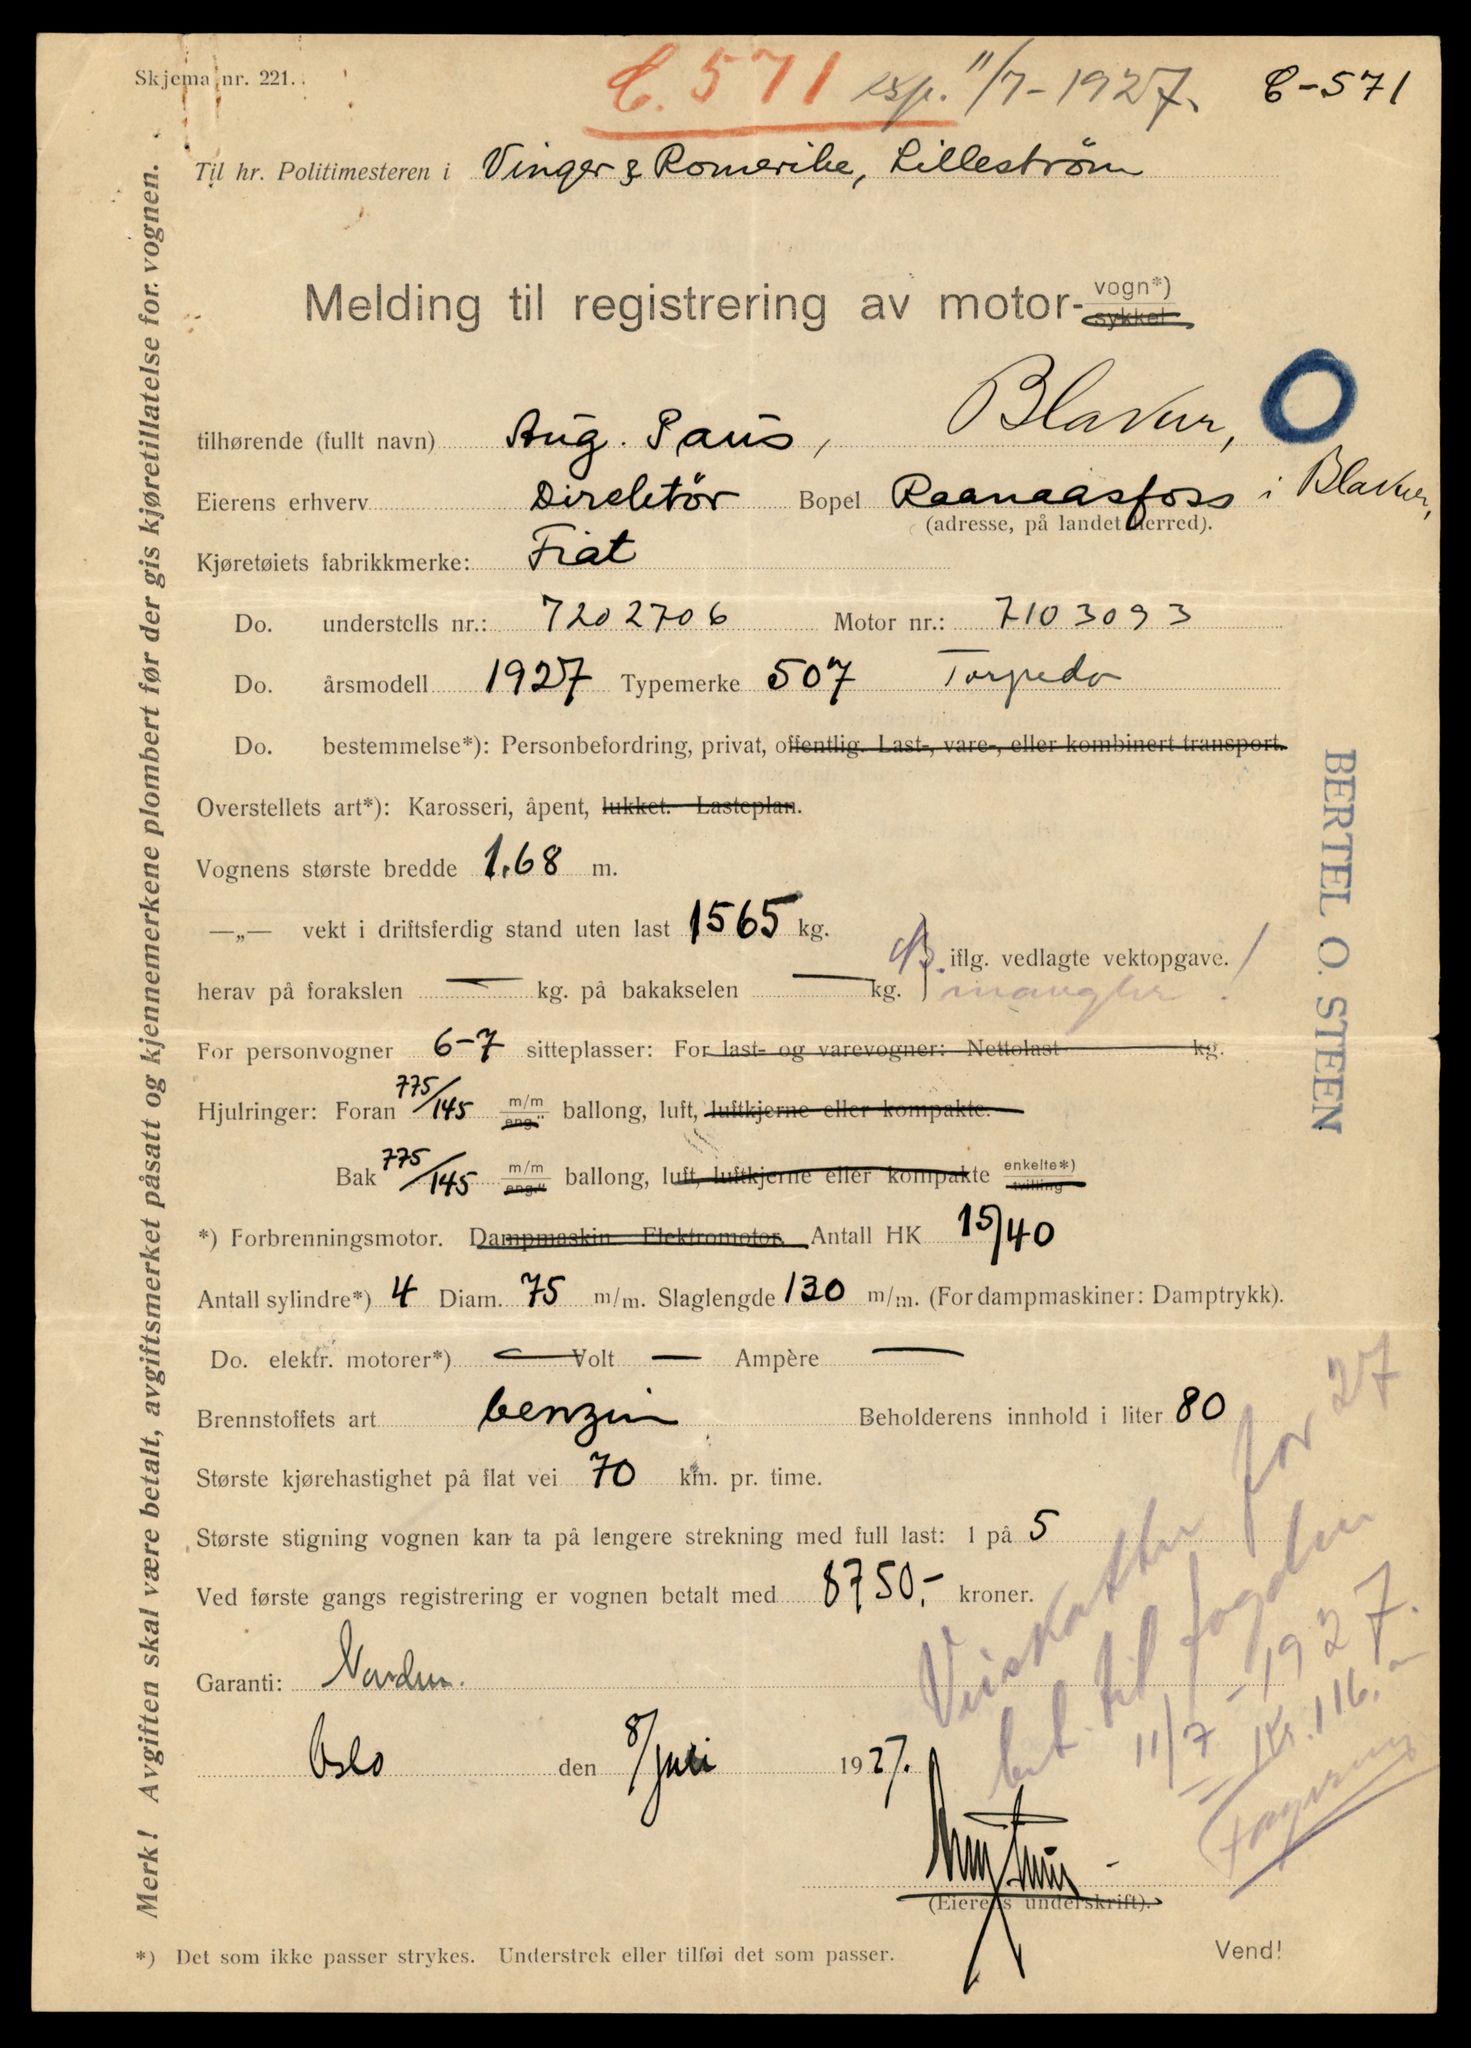 Skjema nr. 221.
C. 571 exp. 11/7-1927. C-571
Til hr. Politimesteren i Vinger & Romerike, Lilleström
Melding til registrering av motor- vogn*)
sykkel
Blaker,
tilhørende (fullt navn) Aug. Paus,
Eierens erhverv Direktör Bopel Raanaasfoss i Blaker,
(adresse, på landet herred).
Kjøretøiets fabrikkmerke: Fiat
Do. understells nr.: 7202706 Motor nr.: 7103093
Do. årsmodell 1927 Typemerke 507 Torpedo
Do. bestemmelse*): Personbefordring, privat, offentlig. Last-, vare-, eller kombinert transport.
Overstellets art*): Karosseri, åpent, lukket. Lasteplan.
Vognens største bredde 1.68 m.
—„— vekt i driftsferdig stand uten last 1565 kg.
iflg. vedlagte vektopgave.
herav på forakslen — kg. på bakakselen — kg. mangler!
For personvogner 6-7 sitteplasser: For last- og varevogner: Nettolast kg.
Hjulringer: Foran 775/145 m/m eng." ballong, luft, luftkjerne eller kompakte.
Bak 775/145 m/m eng." ballong, luft, luftkjerne eller kompakte enkelte*) tvilling
*) Forbrenningsmotor. Dampmaskin. Elektromotor. Antall HK 15/40
Antall sylindre*) 4 Diam. 75 m/m. Slaglengde 130 m/m. (For dampmaskiner: Damptrykk).
Do. elektr. motorer*) — Volt — Ampère —
Brennstoffets art benzin Beholderens innhold i liter 80
Største kjørehastighet på flat vei 70 km. pr. time.
Største stigning vognen kan ta på lengere strekning med full last: 1 på 5
Ved første gangs registrering er vognen betalt med 8750,- kroner.
Garanti: Norden.
Oslo den 8/juli 1927.
(Eierens underskrift).
*) Det som ikke passer strykes. Understrek eller tilføi det som passer.
Vend!
Merk! Avgiften skal være betalt, avgiftsmerket påsatt og kjennemerkene plombert før der gis kjøretillatelse for vognen.
BERTEL O. STEEN
Veiskatten for 27
bet. til fogden
11/7 - 1927.
Kr. 116.-